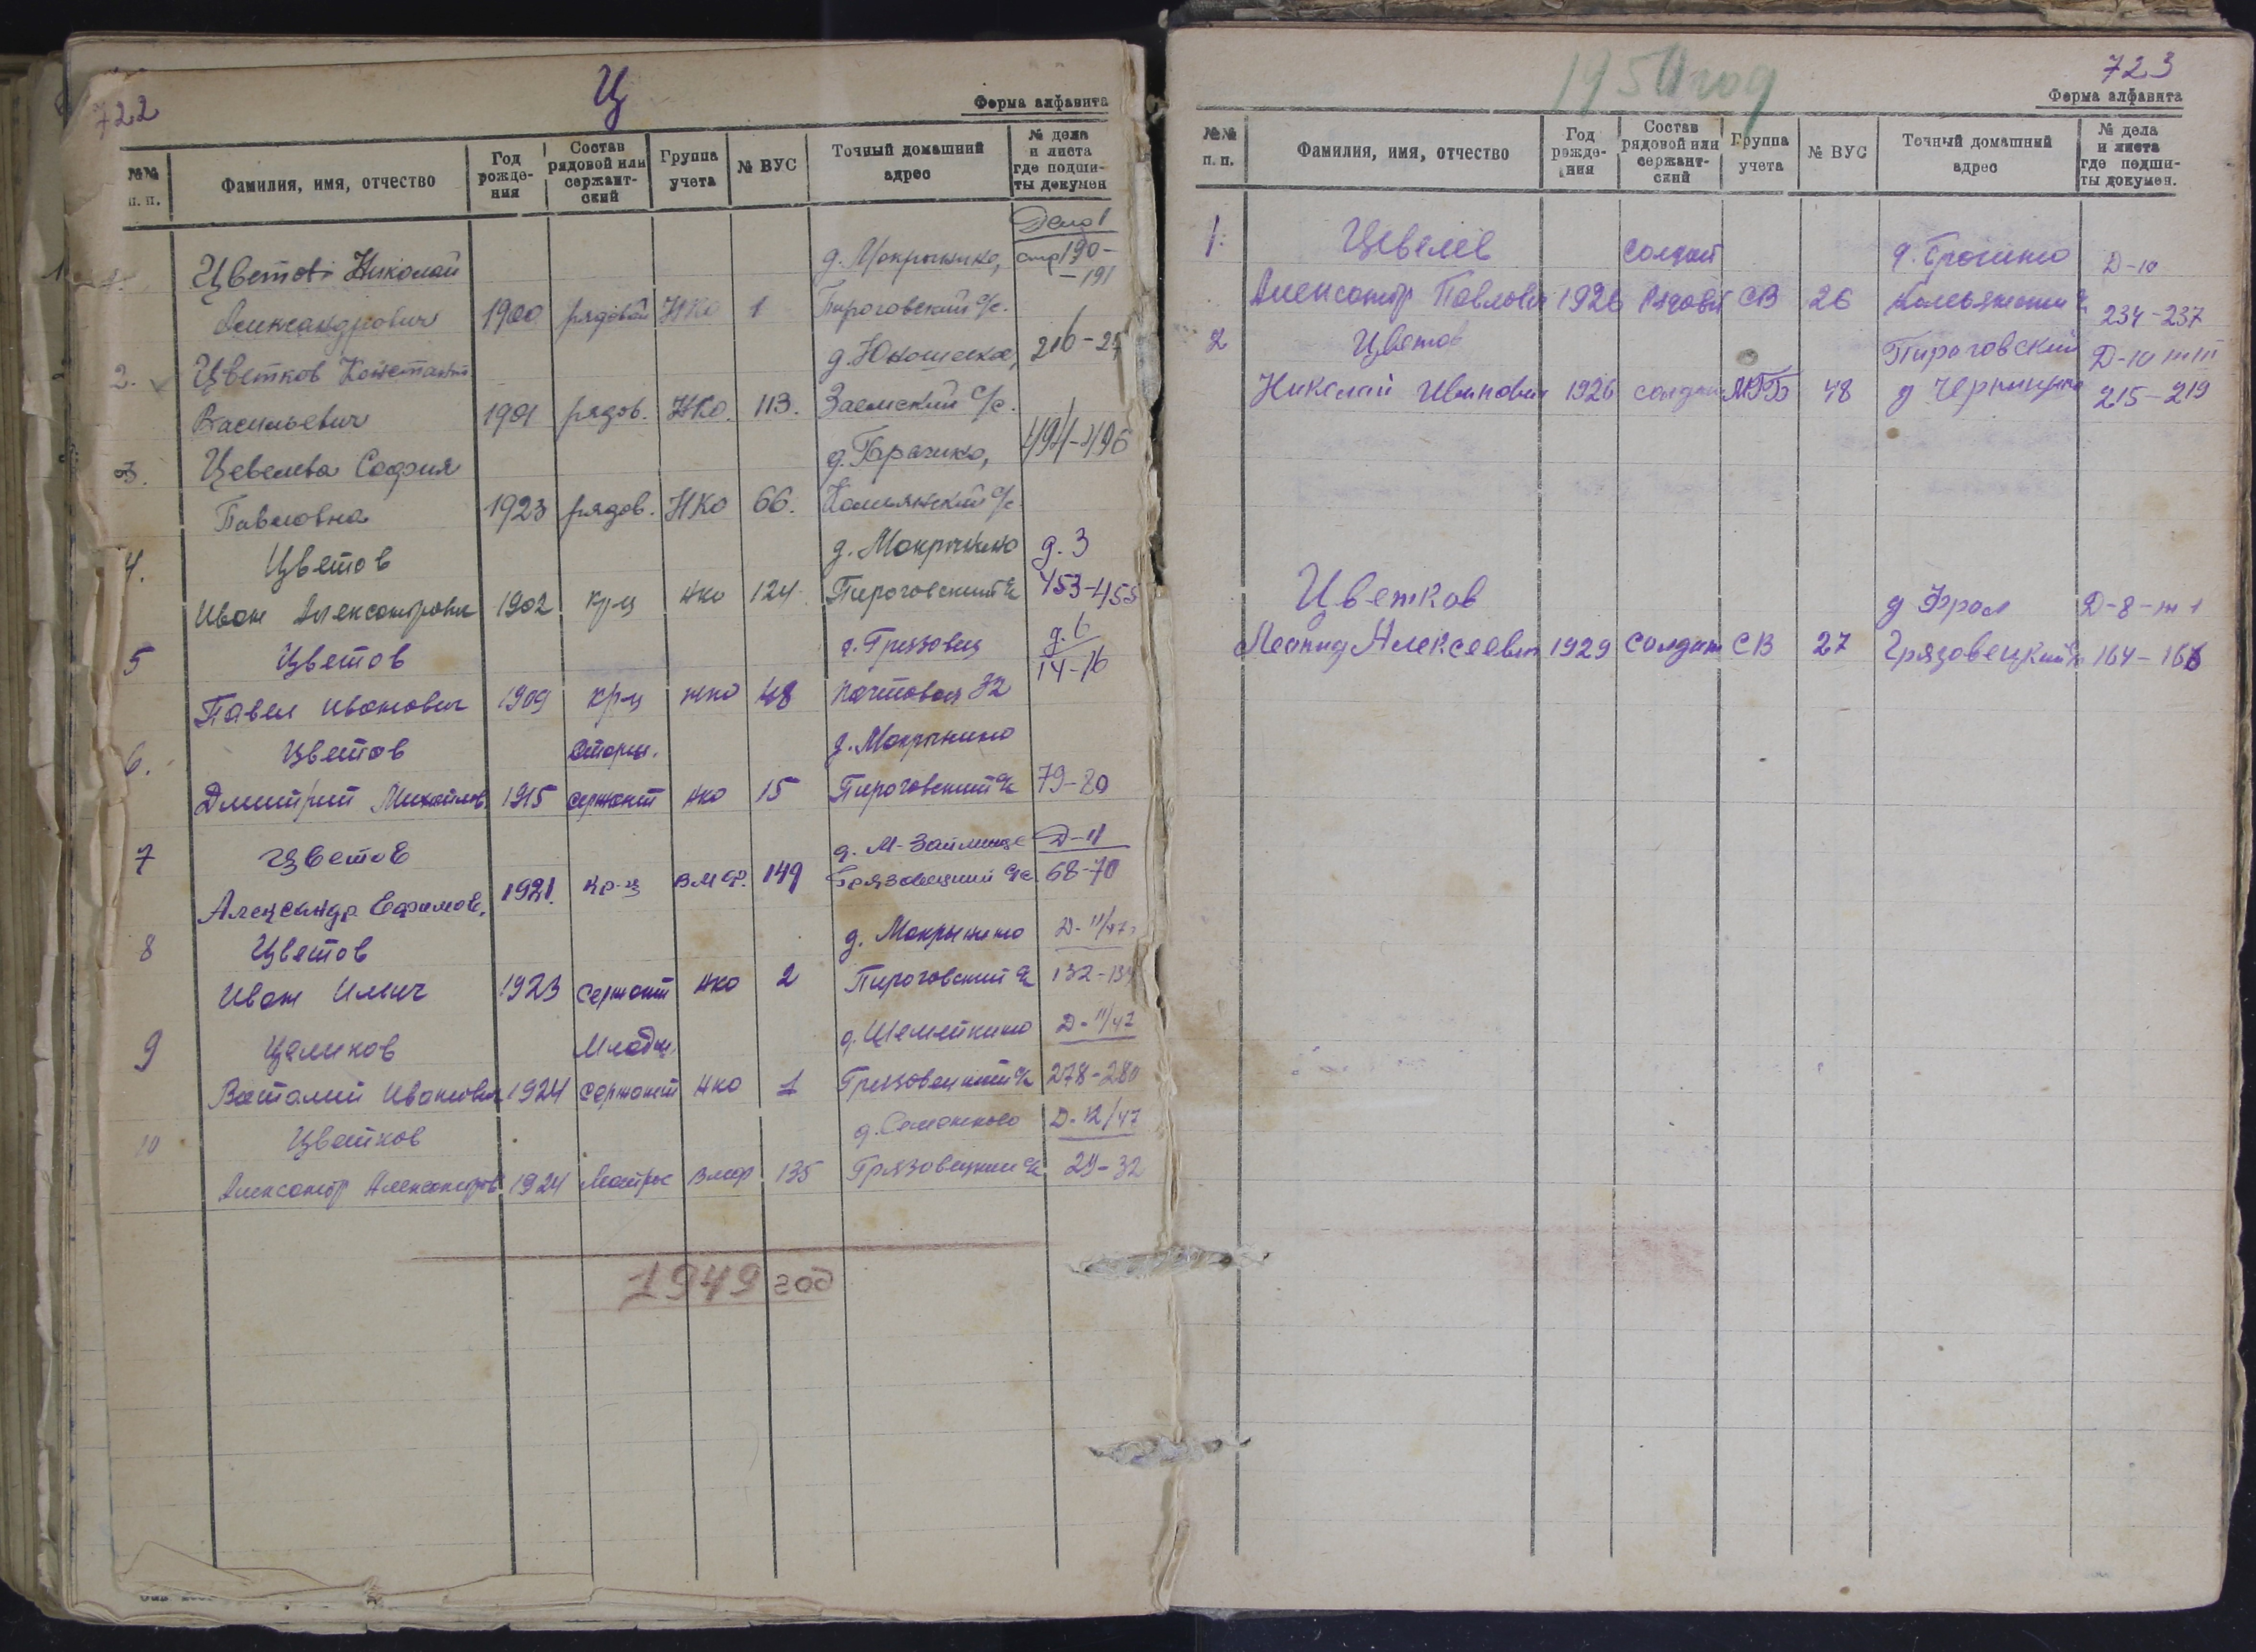 722
Ц
Форма алфавита
№№ п. п.
Фамилия, имя, отчество
Год рожде- ния
Состав рядовой или сержант- ский
Группа учета
№ ВУС
Точный домашний адрес
№ дела и листа где подши- ты докумен
Дело 1
1. Цветов Николай д. Мокрынино, стр 190-
-191
Александрович 1900 рядовой НКО 1 Пироговский с/с.
2. Цветков Констант д. Юношеское, 216-
Васильевич 1901 рядов. НКО. 113. Заемский с/с.
3. Цевелева София 494-496
Павловна 1923 рядов. НКО 66. с/с
4. Цветов д. Мокрынино д. 3
Иван Александрович 1902 кр-ц НКО 124 Пироговский с/с 453-455
5 Цветов г. Грязовец д. 6
Павел Иванович 1909 кр-ц НКО 48 Почтовая 32 14-16
6. Цветов Старш. д. Мокрынино
Дмитрий Михайлов 1915 сержант НКО 15 Пироговский с/с 79-80
7 Цветов д. М-Займище Д-11
Александр Ефимов. 1921. кр-ц ВМФ. 149 Грязовецкий с/с. 68-70
8 Цветов д. Мокрынино Д-11/47
Иван Ильич 1923 сержант НКО 2 Пироговский с/с 132-134
9 Целиков Младш. д. Шемейкино Д-11/47
Виталий Иванович 1924 сержант НКО 1 Грязовецкий с/с 278-280
10 Цветков д. Семенково Д-12/47
Александр Александров 1924 Матрос ВМФ 135 Грязовецкий с/с 29-32
1949 год
1950 год
723
Форма алфавита
№№ п. п.
Фамилия, имя, отчество
Год рожде- ния
Состав рядовой или сержант- ский
Группа учета
№ ВУС
Точный домашний адрес
№ дела и листа где подши- ты докумен.
1. Цевелев солдат Д-10
Александр Павлович 1926 Рядовой СВ 26 234-237
2 Цветов Пироговский Д-10 т III
Николай Иванович 1926 солдат МГБ 48 д 215-219
Цветков д Фрол Д-8-т 1
Леонид Алексеевич 1929 Солдат СВ 27 Грязовецкий с/с 164-166